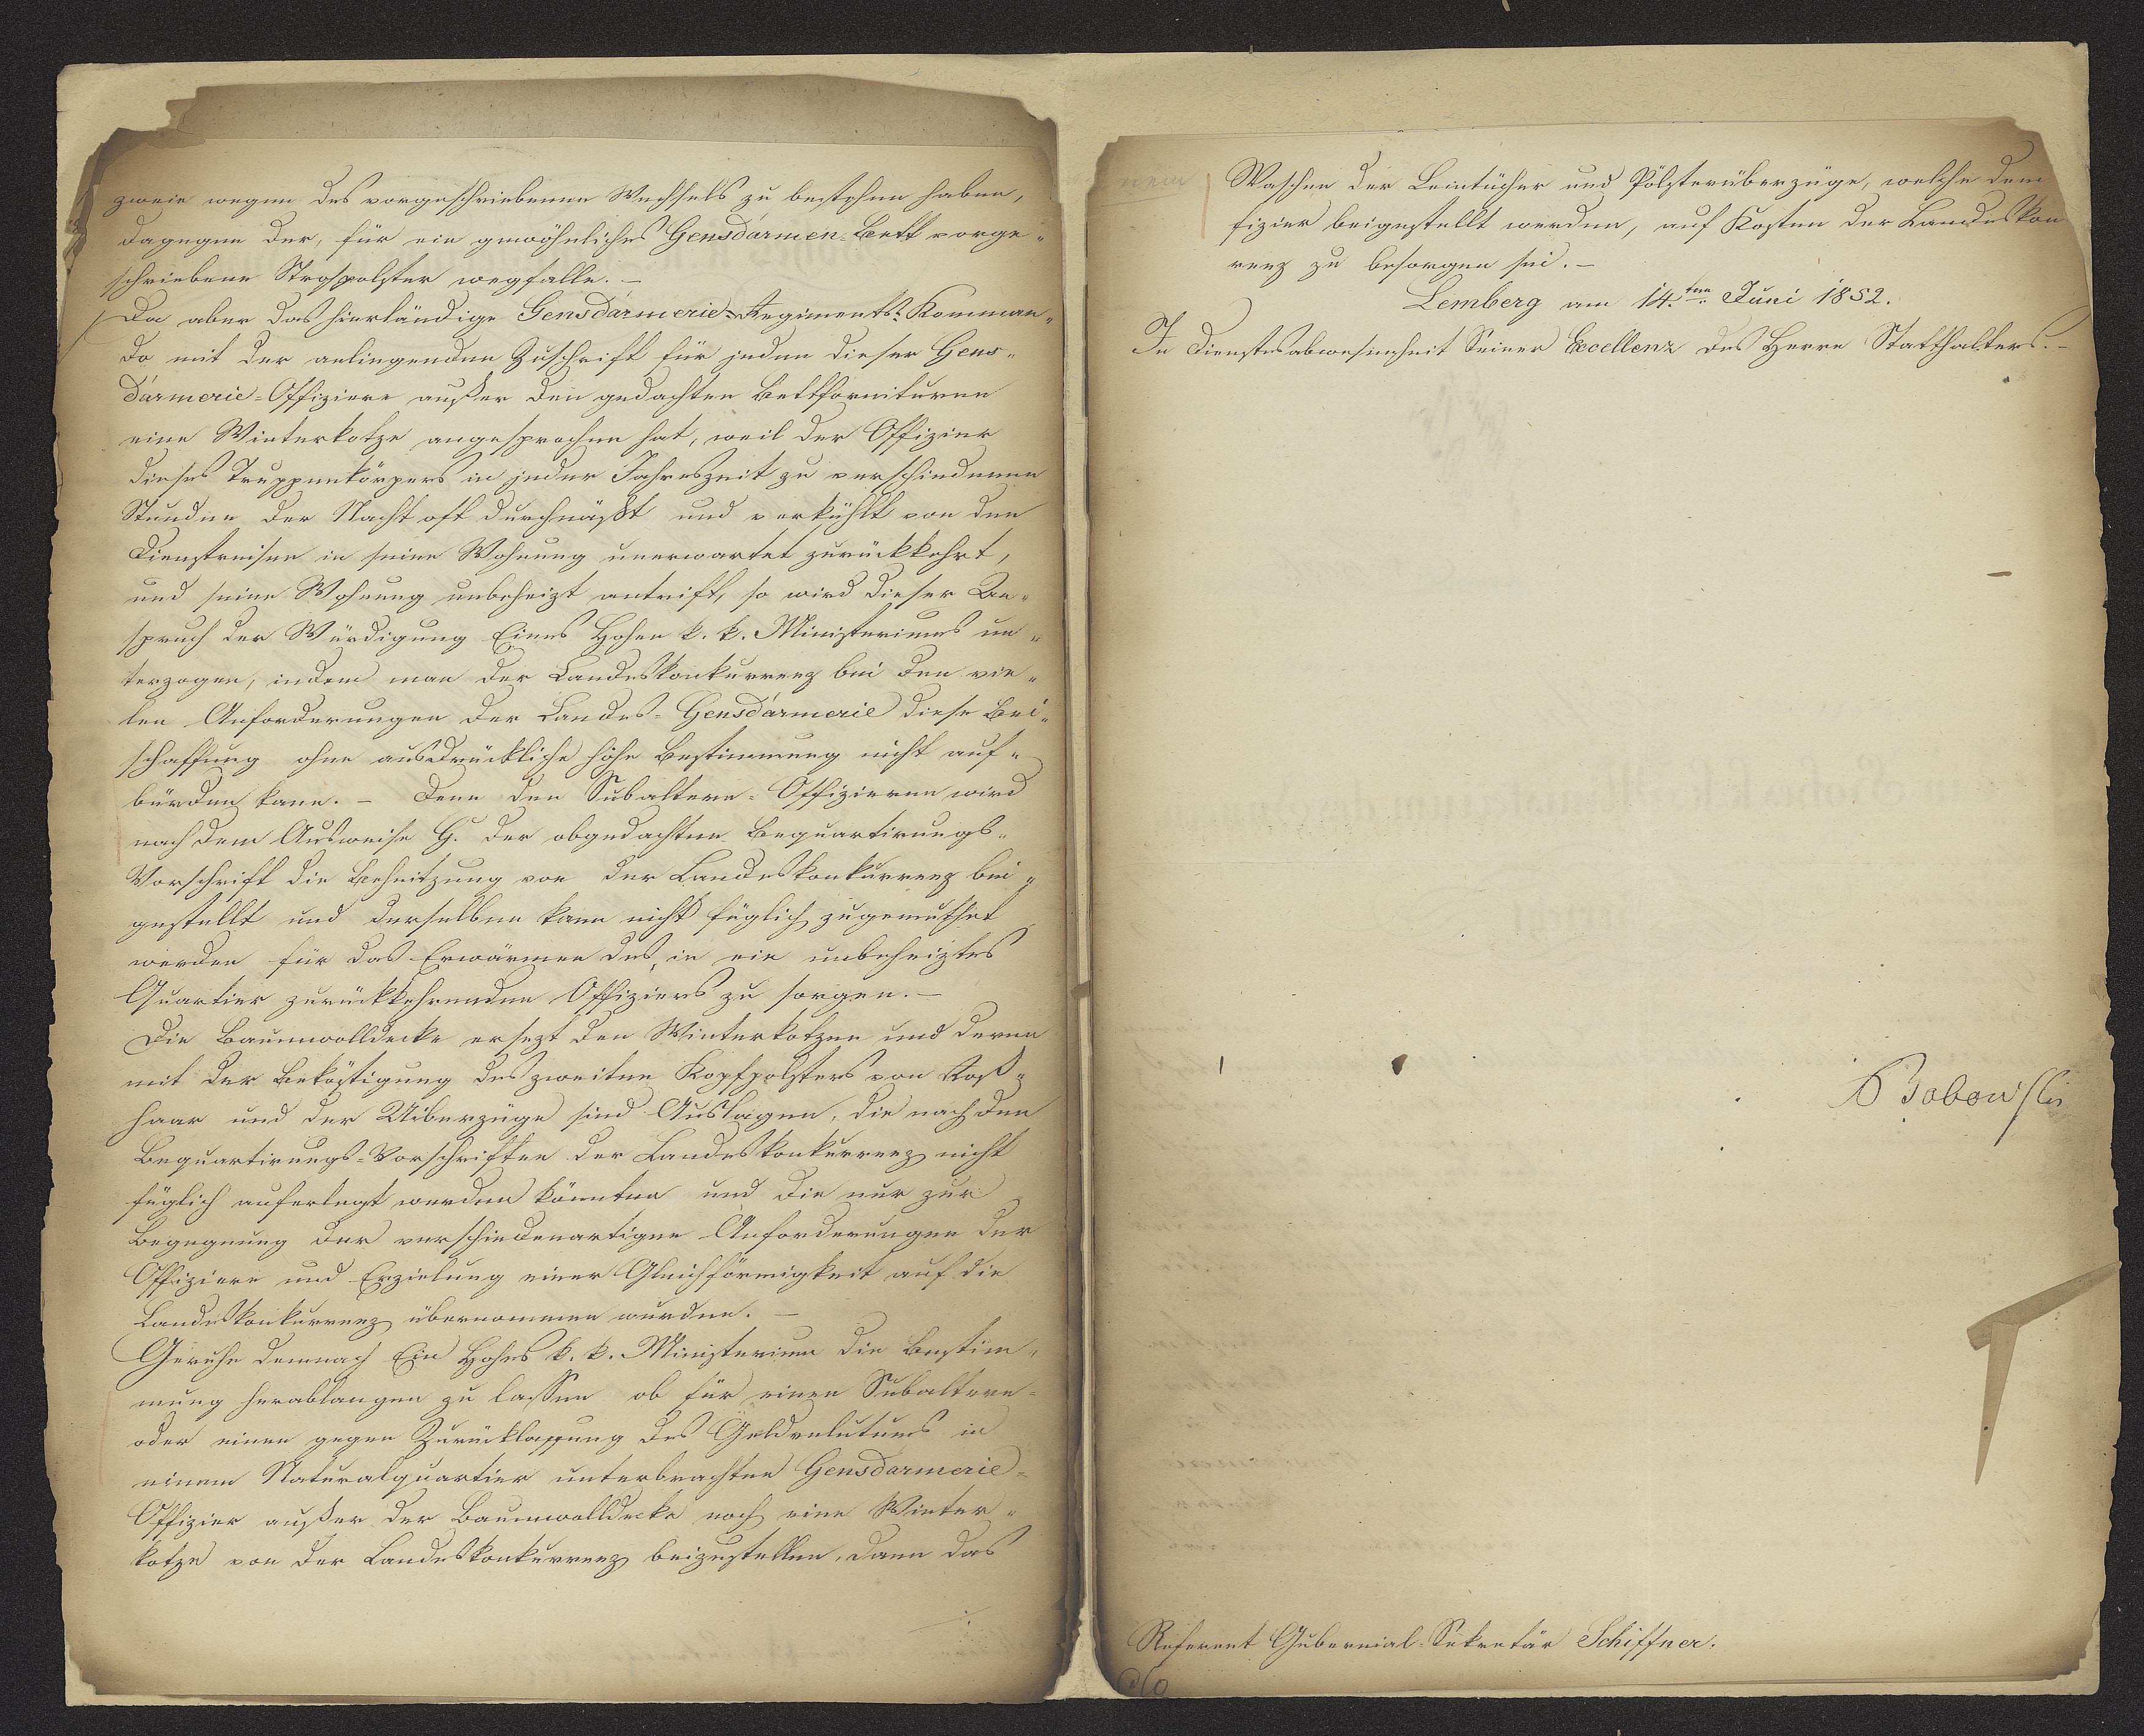 zweie wegen des vorgeschriebenen Wechsels zu bestehen haben,
dagegen der, für ein gewöhnliches Gensdármen-Bett vorge-
schriebene Strohpolster wegfalle. –
Da aber das hierländige Gensdármerie-Regiments-Komman-
do mit der anliegenden Zuschrift für jeden dieser Gens-
dármerie-Offiziere außer den gedachten Bettfornituren
eine Winterkotze angesprochen hat, weil der Offizier
dieses Truppenkörpers in jeder Jahreszeit zu verschiedenen
Stunden der Nacht oft durchnäßt und verkühlt von den
Dienstreisen in seine Wohnung unerwartet zurückkehrt,
und seine Wohnung unbeheizt antrift, so wird dieser An-
spruch der Würdigung Eines Hohen k. k. Ministeriums un-
terzogen, indem man der Landeskonkurrenz bei den vie-
len Anforderungen der Landes-Gensdármerie diese Bei-
schaffung ohne ausdrückliche hohe Bestimmung nicht auf-
bürden kann. – Denn den Subaltern-Offizieren wird
nach dem Ausweise G. der obgedachten Bequartirungs-
Vorschrift die Beheitzung von der Landeskonkurrenz bei-
gestellt und derselben kann nicht füglich zugemuthet
werden für das Erwärmen des, in ein unbeheiztes
Quartier zurückkehrenden Offiziers zu sorgen. –
Die Baumwolldecke ersezt den Winterkotzen und deren
mit der Beköstigung des zweiten Kopfpolsters von Roß-
haar und der Uiberzüge sind Auslagen, die nach den
Bequartirungs-Vorschriften der Landeskonkurrenz nicht
füglich auferlegt werden könnten und die nur zur
Begegnung der verschiedenartigen Anforderungen der
Offiziere und Erzielung einer Gleichförmigkeit auf die
Landeskonkurrenz übernommen wurden. –
Geruhe demnach Ein Hohes k. k. Ministerium die Bestim-
mung herablangen zu lassen ob für einen Subaltern-
oder einen gegen Zurücklassung des Geldrelutums in
einem Naturalquartier unterbrachten Gensdarmerie-
Offizier außer der Baumwolldecke noch eine Winter-
kotze von der Landeskonkurrenz beizustellen, dann das
Waschen der Leintücher und Pölsterüberzüge, welche dem
fizier beigestellt werden, auf Kosten der Landeskon
renz zu besorgen sei. –
Lemberg am 14.ten Juni 1852.
In Dienstesabwesenheit Seiner Excellenz des Herrn Statthalters. –
Referent Gubernial-Sekretär Schiffner.